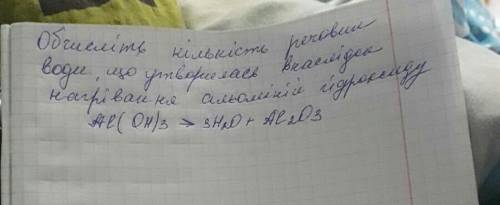 Обчисліть кількість речовин
води, що утворилась внаслідок
нагрівання алюміній гідроксиду
Al(OH)3 → 3H2O + Al2O3